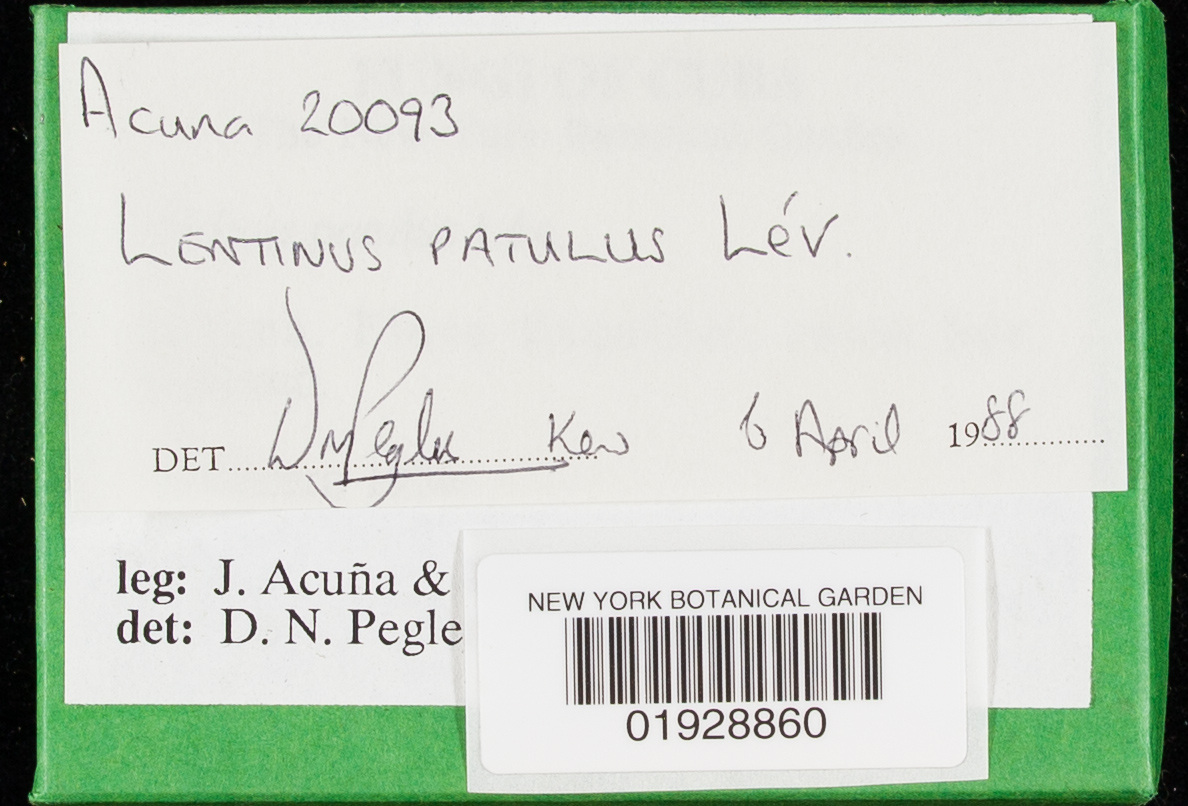 Acuna 20093
LENTINUS PATULUS Lév.
DET. DN Pegler Kew 6 April 1988
leg: J. Acuña &
det: D. N. Pegle
NEW YORK BOTANICAL GARDEN
01928860